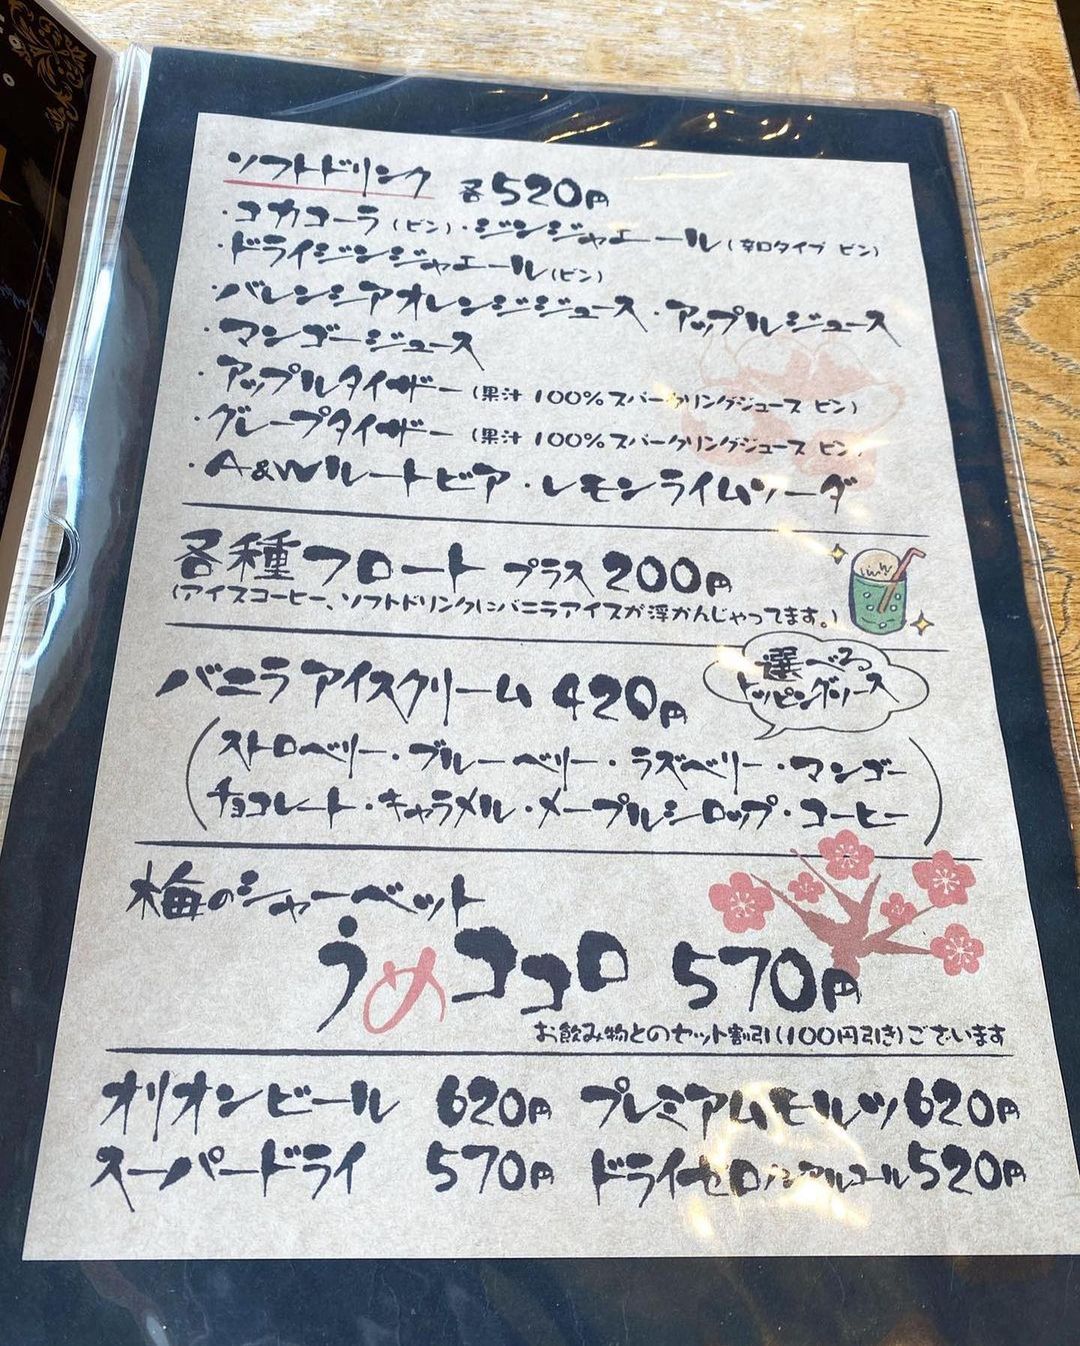 ソフトドリンク 各520円
・コカコーラ(ビン)・ジンジャエール(辛口タイプ ビン)
・ドライジンジャエール(ビン)
・バレンシアオレンジジュース・アップルジュース
・マンゴージュース
・アップルタイザー(果汁100%スパークリングジュース ビン)
・グレープタイザー(果汁100%スパークリングジュース ビン)
・A&Wルートビア・レモンライムソーダ
各種フロート プラス200円
(アイスコーヒー、ソフトドリンクにバニラアイスが浮かんじゃってます。)
バニラアイスクリーム 420円
選べる
トッピングソース
(ストロベリー・ブルーベリー・ラズベリー・マンゴー
チョコレート・キャラメル・メープルシロップ・コーヒー)
梅のシャーベット
うめココロ 570円
お飲み物とのセット割引(100円引き)ございます
オリオンビール 620円 プレミアムモルツ 620円
スーパードライ 570円 ドライゼロノンアルコール 520円